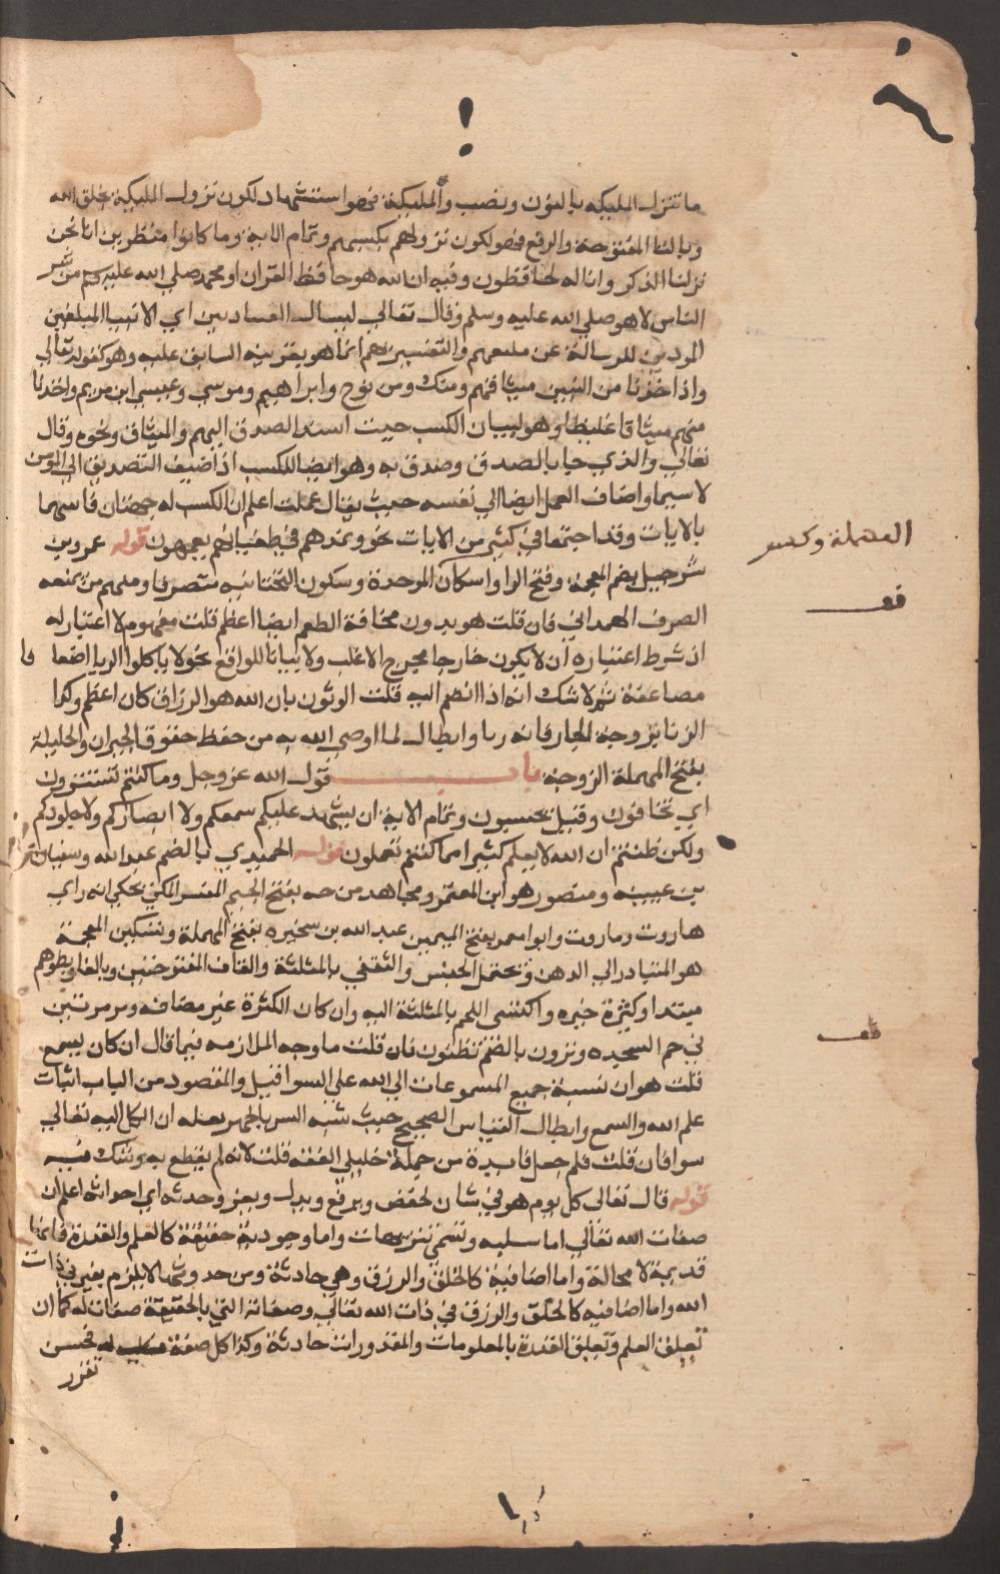 ما تنزل المليكه بالنون ونصب والمليكة فهو استشهاد لكون نزول المليكة بخلق الله
وبالتا المفتوحة والرفع فهو لكون نزولهم بكسبهم وتمام الاية وما كانوا منظرين انا نحن
نزلنا الذكر وانا له لحافظون وفيه ان الله هو حافظ القران او محمد صلي الله عليه من شر
الناس لا هو صلي الله عليه وسلم وقال تعالي ليسال الصادقين اي الانبيا المبلغين
المودين للرسالة عن مبلغهم والتفسير انما هو بقرينة السابق عليه وهو كقوله تعالي
واذ اخذنا من النبين ميثاقهم ومنك ومن نوح وابراهيم وموسي وعيسي ابن مريم واخذنا
منهم ميثاقا غليظا وهو لبيان الكسب حيث اسند الصدق اليهم والميثاق ونحوه وقال
تعالي والذي جا بالصدق وصدق به وهو ايضا للكسب اذ اضيف التصديق الي المومن
لا سيما واضاف العمل ايضا الي نفسه حيث يقال عملت اعلم ان الكسب له جهتان فاثبتهما
بالايات وقد اجتمعا في كثير من الايات نحو ويمدهم في طغيانهم يعمهون قوله عمرو بن
شرحبيل بضم المعجمة وفتح الرا واسكان الموحدة وسكون التحتانيه منصرفا ومنهم من يمنعه
المهملة وكسر
الصرف الهمداني فان قلت هو بدون مخافة الطعم ايضا اعظم قلت مفهوم لا اعتبار له
قف
اذ شرط اعتباره ان لا يكون خارجا مخرج الاغلب ولا بيانا للواقع نحو لا ياكلوا الربا اضعافا
مضاعفة ثم لا شك انه اذا انضم اليه قلت الوثوق بان الله هو الرزاق كان اعظم وكذا
الزنا بزوجة الجار فانه زنا وابطال لما اوصي الله به من حفظ حقوق الجيران والحليلة
بفتح المهملة الزوجة باب قول الله عز وجل وما كنتم تستترون
اي تخافون وقيل تخشون وتمام الاية ان يشهد عليكم سمعكم ولا ابصاركم ولا جلودكم
ولكن ظننتم ان الله لا يعلم كثيرا مما كنتم تعملون قوله الحميدي بالضم عبد الله وسفيان
بن عيينه ومنصور هو ابن المعتمر ومجاهد من جبه بفتح الجيم المفسر المكي يحكي انه راي
هاروت وماروت وابو معمر بفتح الميمين عبد الله بن سخبره بفتح المهملة وتسكين المعجمة
هو المتبادر الي الذهن ويحتمل الجنس والثقفي بالمثلثة والقاف المفتوحتين وبالفا وبطونهم
مبتدا وكثيرة خبره واكتسي اللحم بالمثلثة اليه وان كان الكثرة غير مضافه ومر مرتين
في حم السجده وترون بالضم تظنون فان قلت ما وجه الملازمه فيما قال ان كان يسمع
قف
قلت هو ان نسبة جميع المسموعات الي الله علي السوا قيل والمقصود من الباب اثبات
علم الله والسمع وابطال القياس الصحيح حيث شبه السر بالجهر بعلة ان الكل اليه تعالي
سوا فان قلت فلم جعل قايله من جملة قليلي الفقه قلت لانه لم يقطع به وشك فيه
قوله قال تعالي كل يوم هو في شان لخفض ويرفع ويذل ويعز وحدثه اي احداثه اعلم ان
صفات الله تعالي اما سلبيه وتسمي تنزيهات واما وجوديه حقيقة كالعلم والقدرة فانها
قديمة لا محالة واما اضافية كالخلق والرزق وهي حادثة ومن حدوثها لا يلزم تغير في ذات
الله واما اضافيه كالخلق والرزق في ذات الله تعالي وصفاته التي بالحقيقة صفات له كما ان
تعلق العلم وتعلق القدرة بالمعلومات والمقدورات حادثة وكذا كل صفة فحسن
تقرر